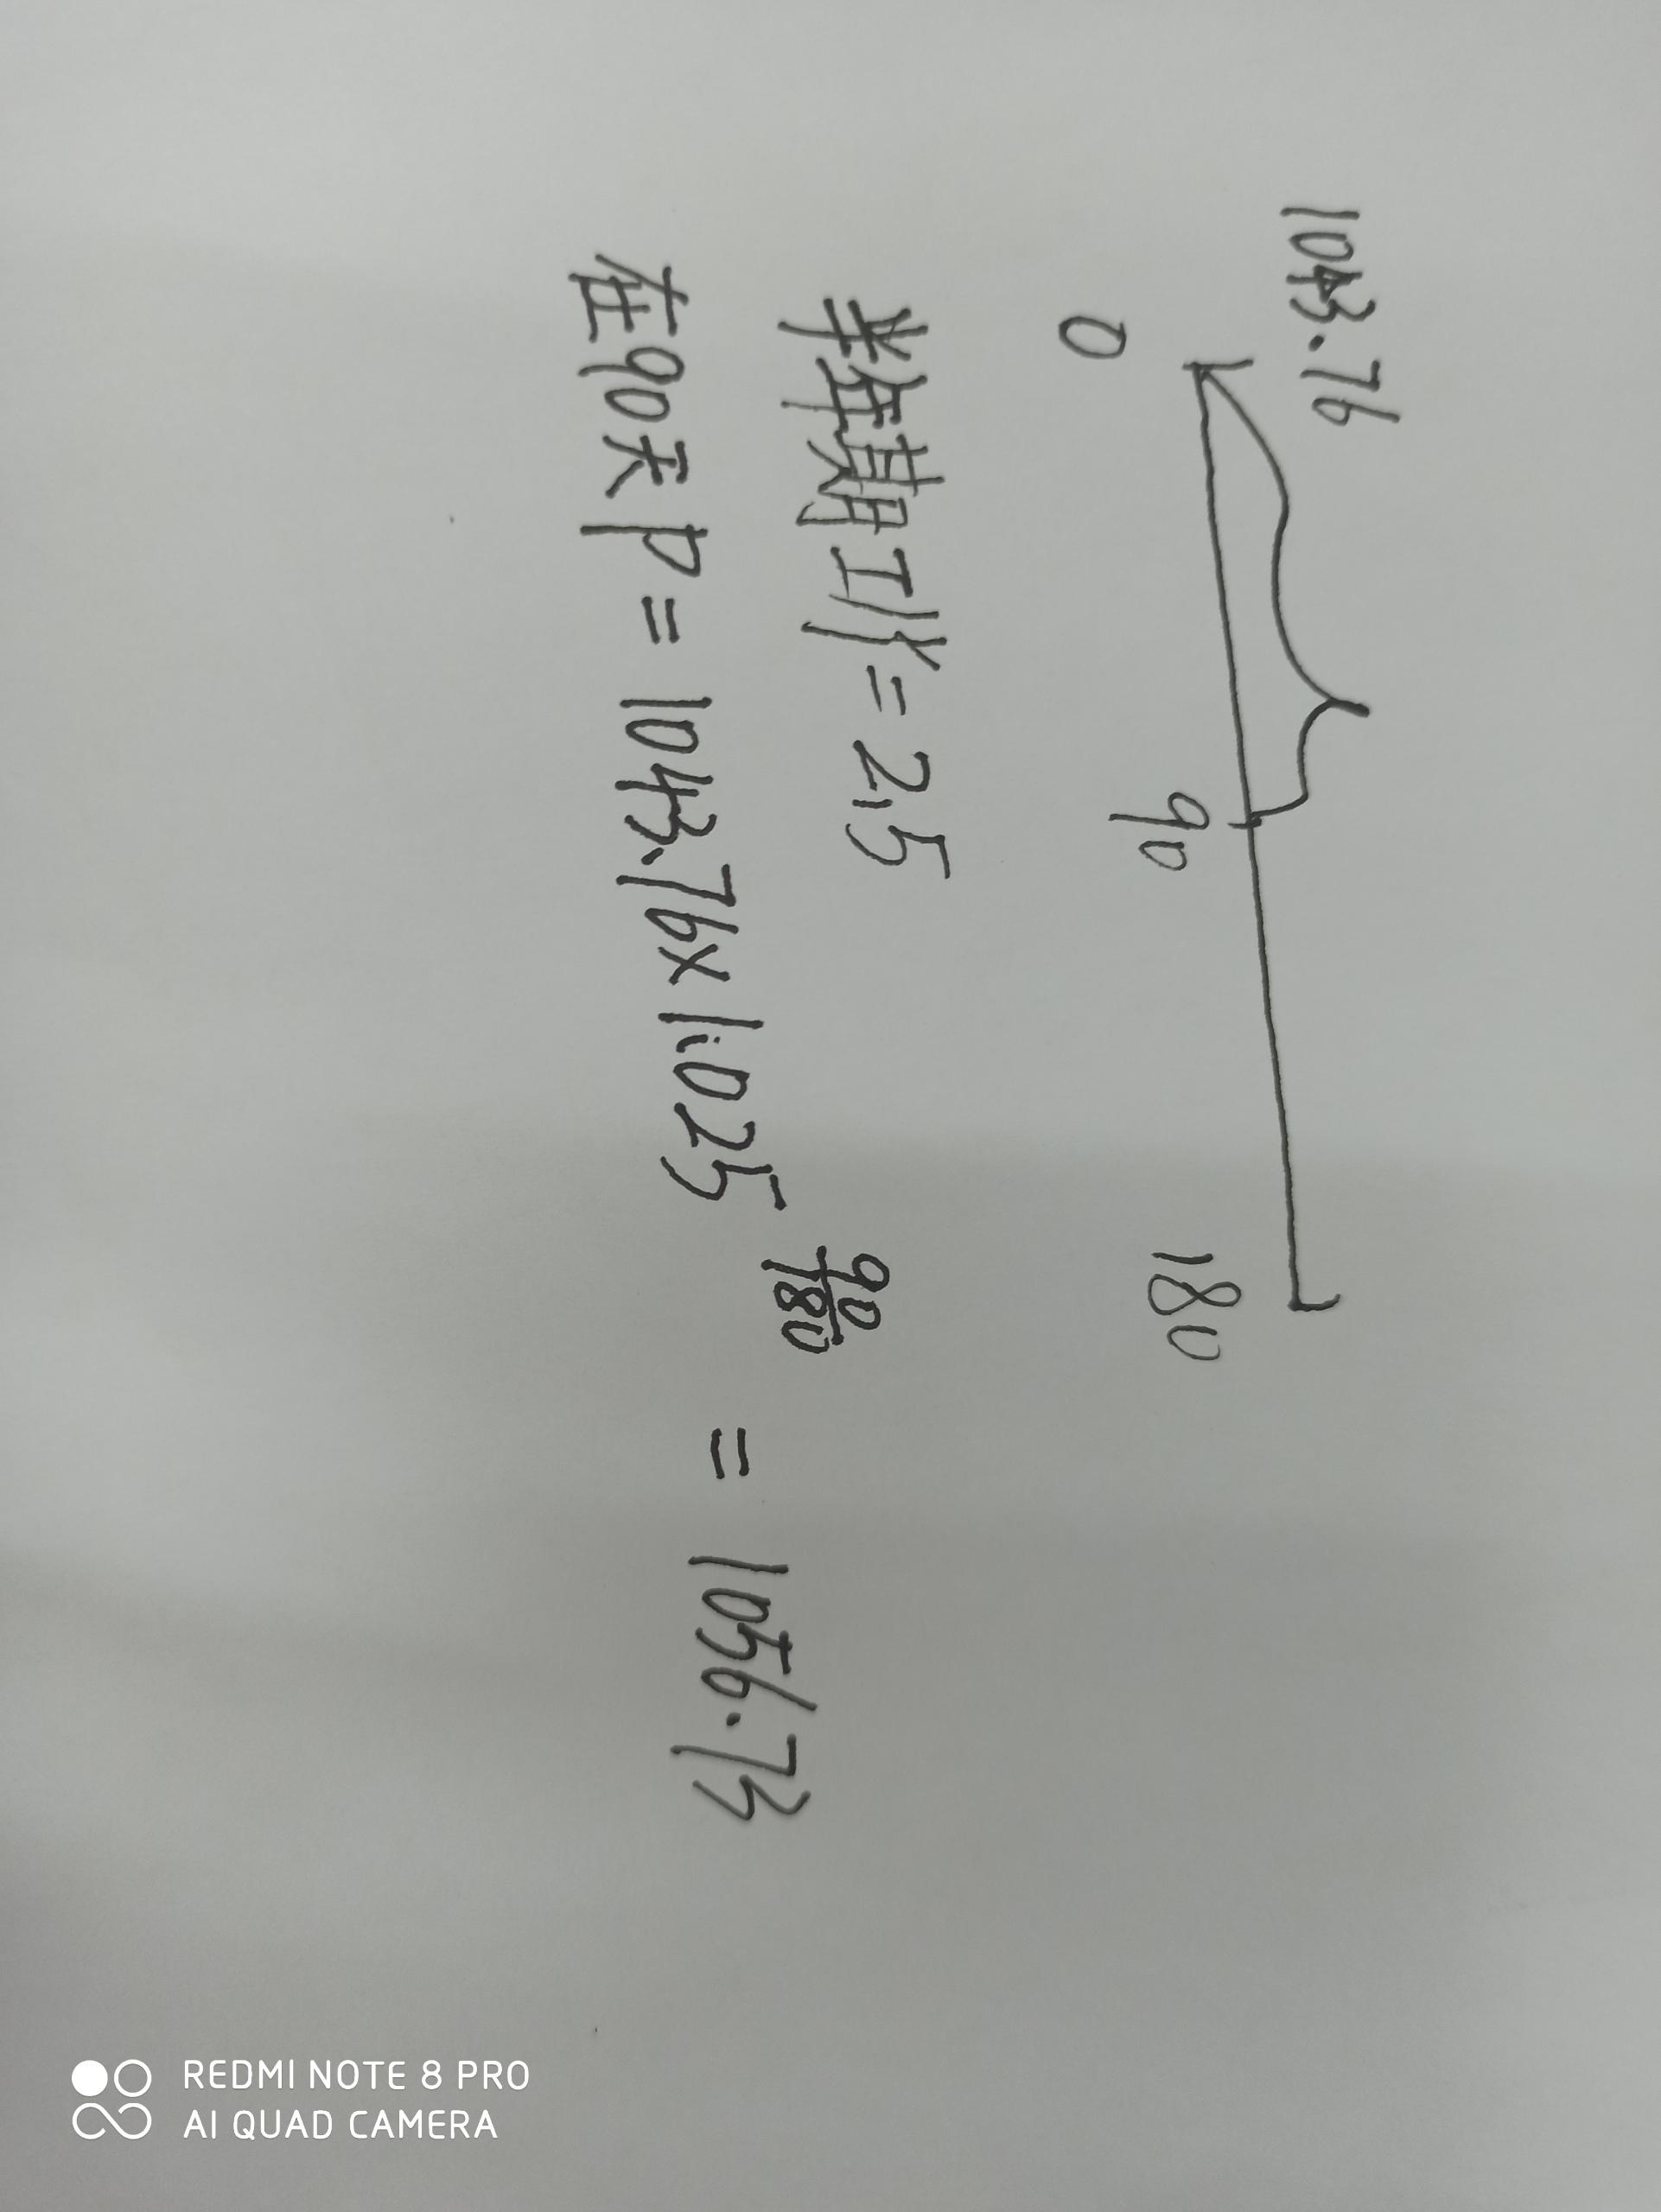 1043.76
0 90 180
半年期I/Y=2.5
在90天P = 1043.76×1.025^(90/180) = 1056.73
REDMI NOTE 8 PRO
AI QUAD CAMERA